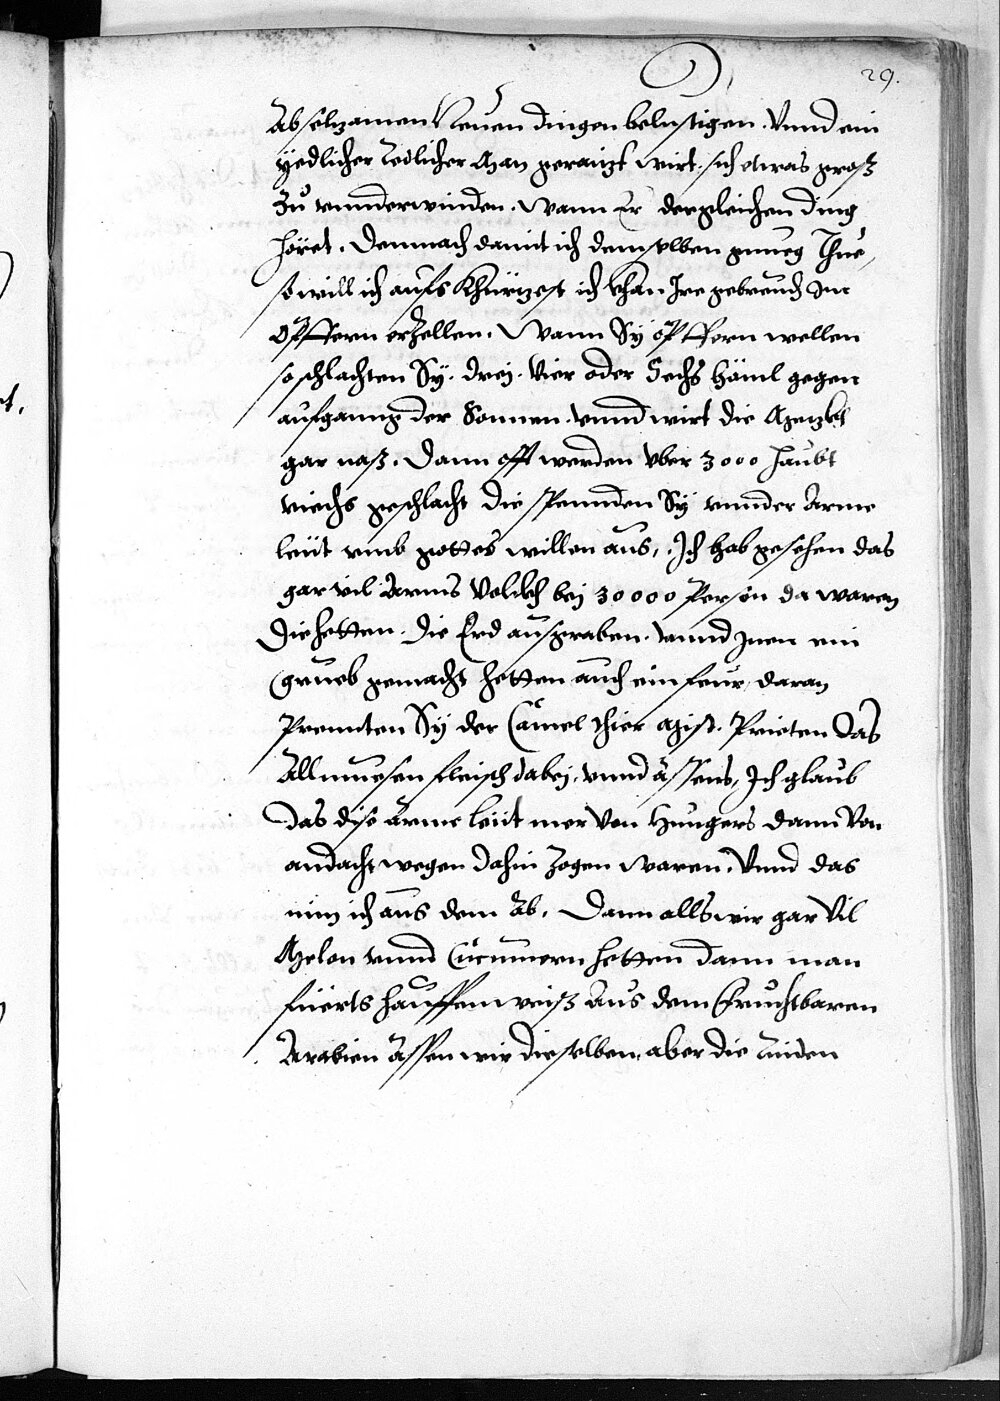 29.
Ab seltzamen Neuen dingen belustigen. Vnnd ein
yedlicher Redlicher Man geraitzt wirt, sich etwas groß
Zu vnnderwinden. Wann Er dergleichen ding
höret. Demnach damit ich demselben gnueg Thue,
so will ich aufs Khürtzest ich khan Ire gebreuch Im
Opffern erzellen. Wann Sÿ opffern wellen
so schlachten Sÿ. dreÿ. Vier oder Sechs häml gegen
aufganng der Sonnen. vnnd wirt die Metzkt
gar naß. Dann offt werden vber 3000 haubt
viechs geschlacht die spennden Sÿ vnnder Arme
leüt vmb gottes willen aus, Ich hab gesehen das
gar vil Arms Volckh beÿ 30000 Person da waren
die hetten die Erd ausgraben. vnnd Inen ein
Grueb gemacht hetten auch ein feur, daran
Prennten Sÿ der Camel thier mist. Prieten Das
Allmuesen fleisch dabeÿ, vnnd ässens, Ich glaub
das dise Arme leüt mer Von Hungers dann Von
andacht wegen dahin Zogen waren. Vnnd das
nim ich aus dem Ab, Dann alls wir gar Vil
Melon vnnd Cucumern hetten dann man
füerts hauffen weiß Aus dem fruchtbaren
Arabien ässen wir dieselben, aber die Rinden